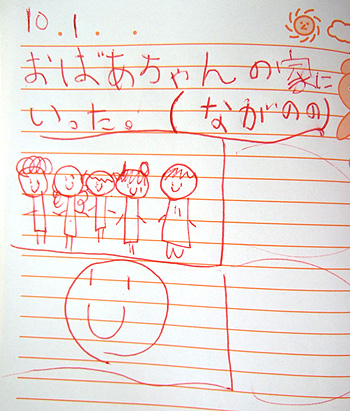 10.1...
おばあちゃんの家に
いった。(ながのの)